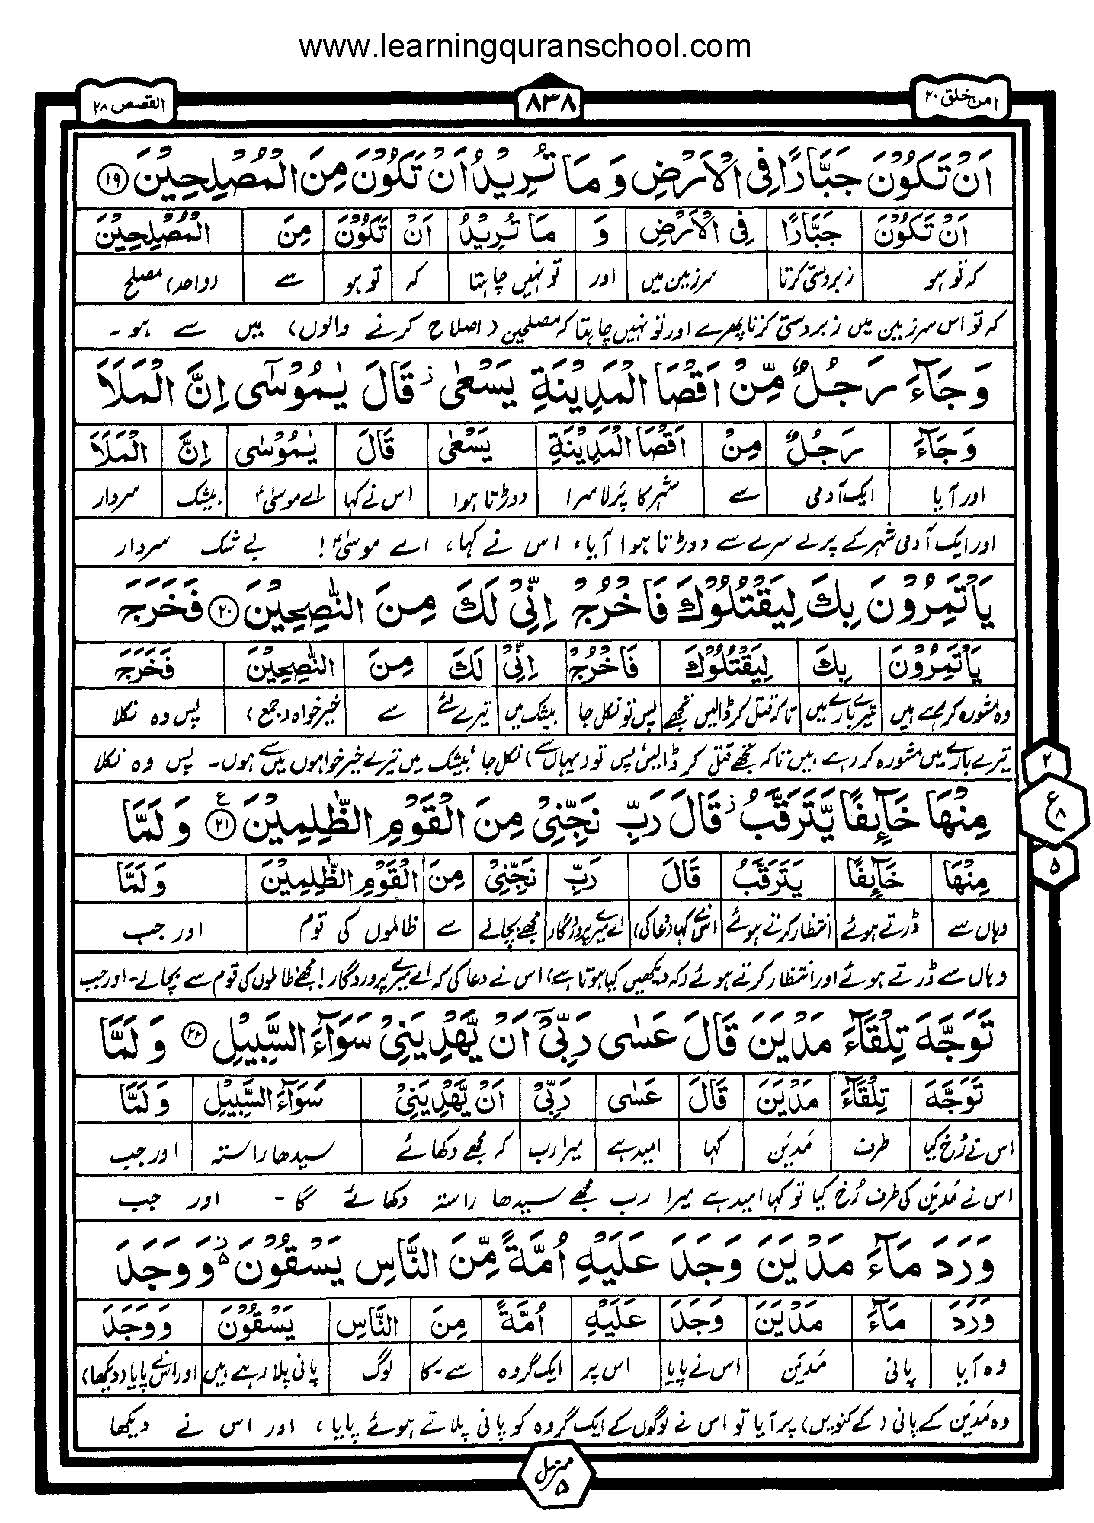 www.learningquranschool.com
امن خلق ۲۰ ۸۳۸ القصص ۲۸
اَنْ تَكُوْنَ جَبَّارًا فِى الْاَرْضِ وَ مَا تُرِيْدُ اَنْ تَكُوْنَ مِنَ الْمُصْلِحِيْنَ ۱۹
اَنْ تَكُوْنَ جَبَّارًا فِى الْاَرْضِ وَ مَا تُرِيْدُ اَنْ تَكُوْنَ مِنَ الْمُصْلِحِيْنَ
کہ تو ہو زبردستی کرتا سرزمین میں اور تو نہیں چاہتا کہ تو ہو سے (واحد) مصلح
کہ تو اس سرزمین میں زبردستی کرتا پھرے اور تو نہیں چاہتا کہ مصلحین (اصلاح کرنے والوں) میں سے ہو۔
وَ جَآءَ رَجُلٌ مِّنْ اَقْصَا الْمَدِيْنَةِ يَسْعٰى ز قَالَ يٰمُوْسٰٓى اِنَّ الْمَلَاَ
وَ جَآءَ رَجُلٌ مِنْ اَقْصَا الْمَدِيْنَةِ يَسْعٰى قَالَ يٰمُوْسٰٓى اِنَّ الْمَلَاَ
اور آیا ایک آدمی سے شہر کا پرلا سرا دوڑتا ہوا اس نے کہا اے موسیٰؑ بیشک سردار
اور ایک آدمی شہر کے پرلے سرے سے دوڑتا ہوا آیا، اس نے کہا، اے موسیٰؑ! بے شک سردار
يَاْتَمِرُوْنَ بِكَ لِيَقْتُلُوْكَ فَاخْرُجْ اِنِّىْ لَكَ مِنَ النّٰصِحِيْنَ ۲۰ فَخَرَجَ
يَاْتَمِرُوْنَ بِكَ لِيَقْتُلُوْكَ فَاخْرُجْ اِنِّىْ لَكَ مِنَ النّٰصِحِيْنَ فَخَرَجَ
وہ مشورہ کر رہے ہیں تیرے بارے میں تاکہ قتل کر ڈالیں تجھے پس تو نکل جا بیشک میں تیرے لئے سے خیر خواہ (جمع) پس وہ نکلا
تیرے بارے میں مشورہ کر رہے ہیں تاکہ تجھے قتل کر ڈالیں پس تو (یہاں سے) نکل جا، بیشک میں تیرے خیر خواہوں میں سے ہوں۔ پس وہ نکلا
۲
مِنْهَا خَآئِفًا يَّتَرَقَّبُ ز قَالَ رَبِّ نَجِّنِىْ مِنَ الْقَوْمِ الظّٰلِمِيْنَ ۲۱ ع وَ لَمَّا
ع ۸
مِنْهَا خَآئِفًا يَتَرَقَّبُ قَالَ رَبِّ نَجِّنِىْ مِنَ الْقَوْمِ الظّٰلِمِيْنَ وَ لَمَّا
۵
وہاں سے ڈرتے ہوئے انتظار کرتے ہوئے اس نے کہا (دعا کی) اے میرے پروردگار مجھے بچالے سے ظالموں کی قوم اور جب
وہاں سے ڈرتے ہوئے اور انتظار کرتے ہوئے (کہ دیکھیں کیا ہوتا ہے) اس نے دعا کی کہ اے میرے پروردگار! مجھے ظالموں کی قوم سے بچالے۔ اور جب
تَوَجَّهَ تِلْقَآءَ مَدْيَنَ قَالَ عَسٰى رَبِّىْٓ اَنْ يَّهْدِيَنِىْ سَوَآءَ السَّبِيْلِ ۲۲ وَ لَمَّا
تَوَجَّهَ تِلْقَآءَ مَدْيَنَ قَالَ عَسٰى رَبِّىْٓ اَنْ يَّهْدِيَنِىْ سَوَآءَ السَّبِيْلِ وَ لَمَّا
اس نے رُخ کیا طرف مَدْیَن کہا امید ہے میرا رب کہ مجھے دکھائے سیدھا راستہ اور جب
اس نے مَدْیَن کی طرف رُخ کیا تو کہا امید ہے میرا رب مجھے سیدھا راستہ دکھائے گا۔ اور جب
وَرَدَ مَآءَ مَدْيَنَ وَجَدَ عَلَيْهِ اُمَّةً مِّنَ النَّاسِ يَسْقُوْنَ وَ وَجَدَ
وَرَدَ مَآءَ مَدْيَنَ وَجَدَ عَلَيْهِ اُمَّةً مِنَ النَّاسِ يَسْقُوْنَ وَ وَجَدَ
وہ آیا پانی مَدْیَن اس نے پایا اس پر ایک گروہ سے۔کا لوگ پانی پلا رہے ہیں اور اس نے پایا (دیکھا)
وہ مَدْیَن کے پانی (کے کنویں) پر آیا تو اس نے لوگوں کے ایک گروہ کو پانی پلاتے ہوئے پایا، اور اس نے دیکھا
منزل ۵